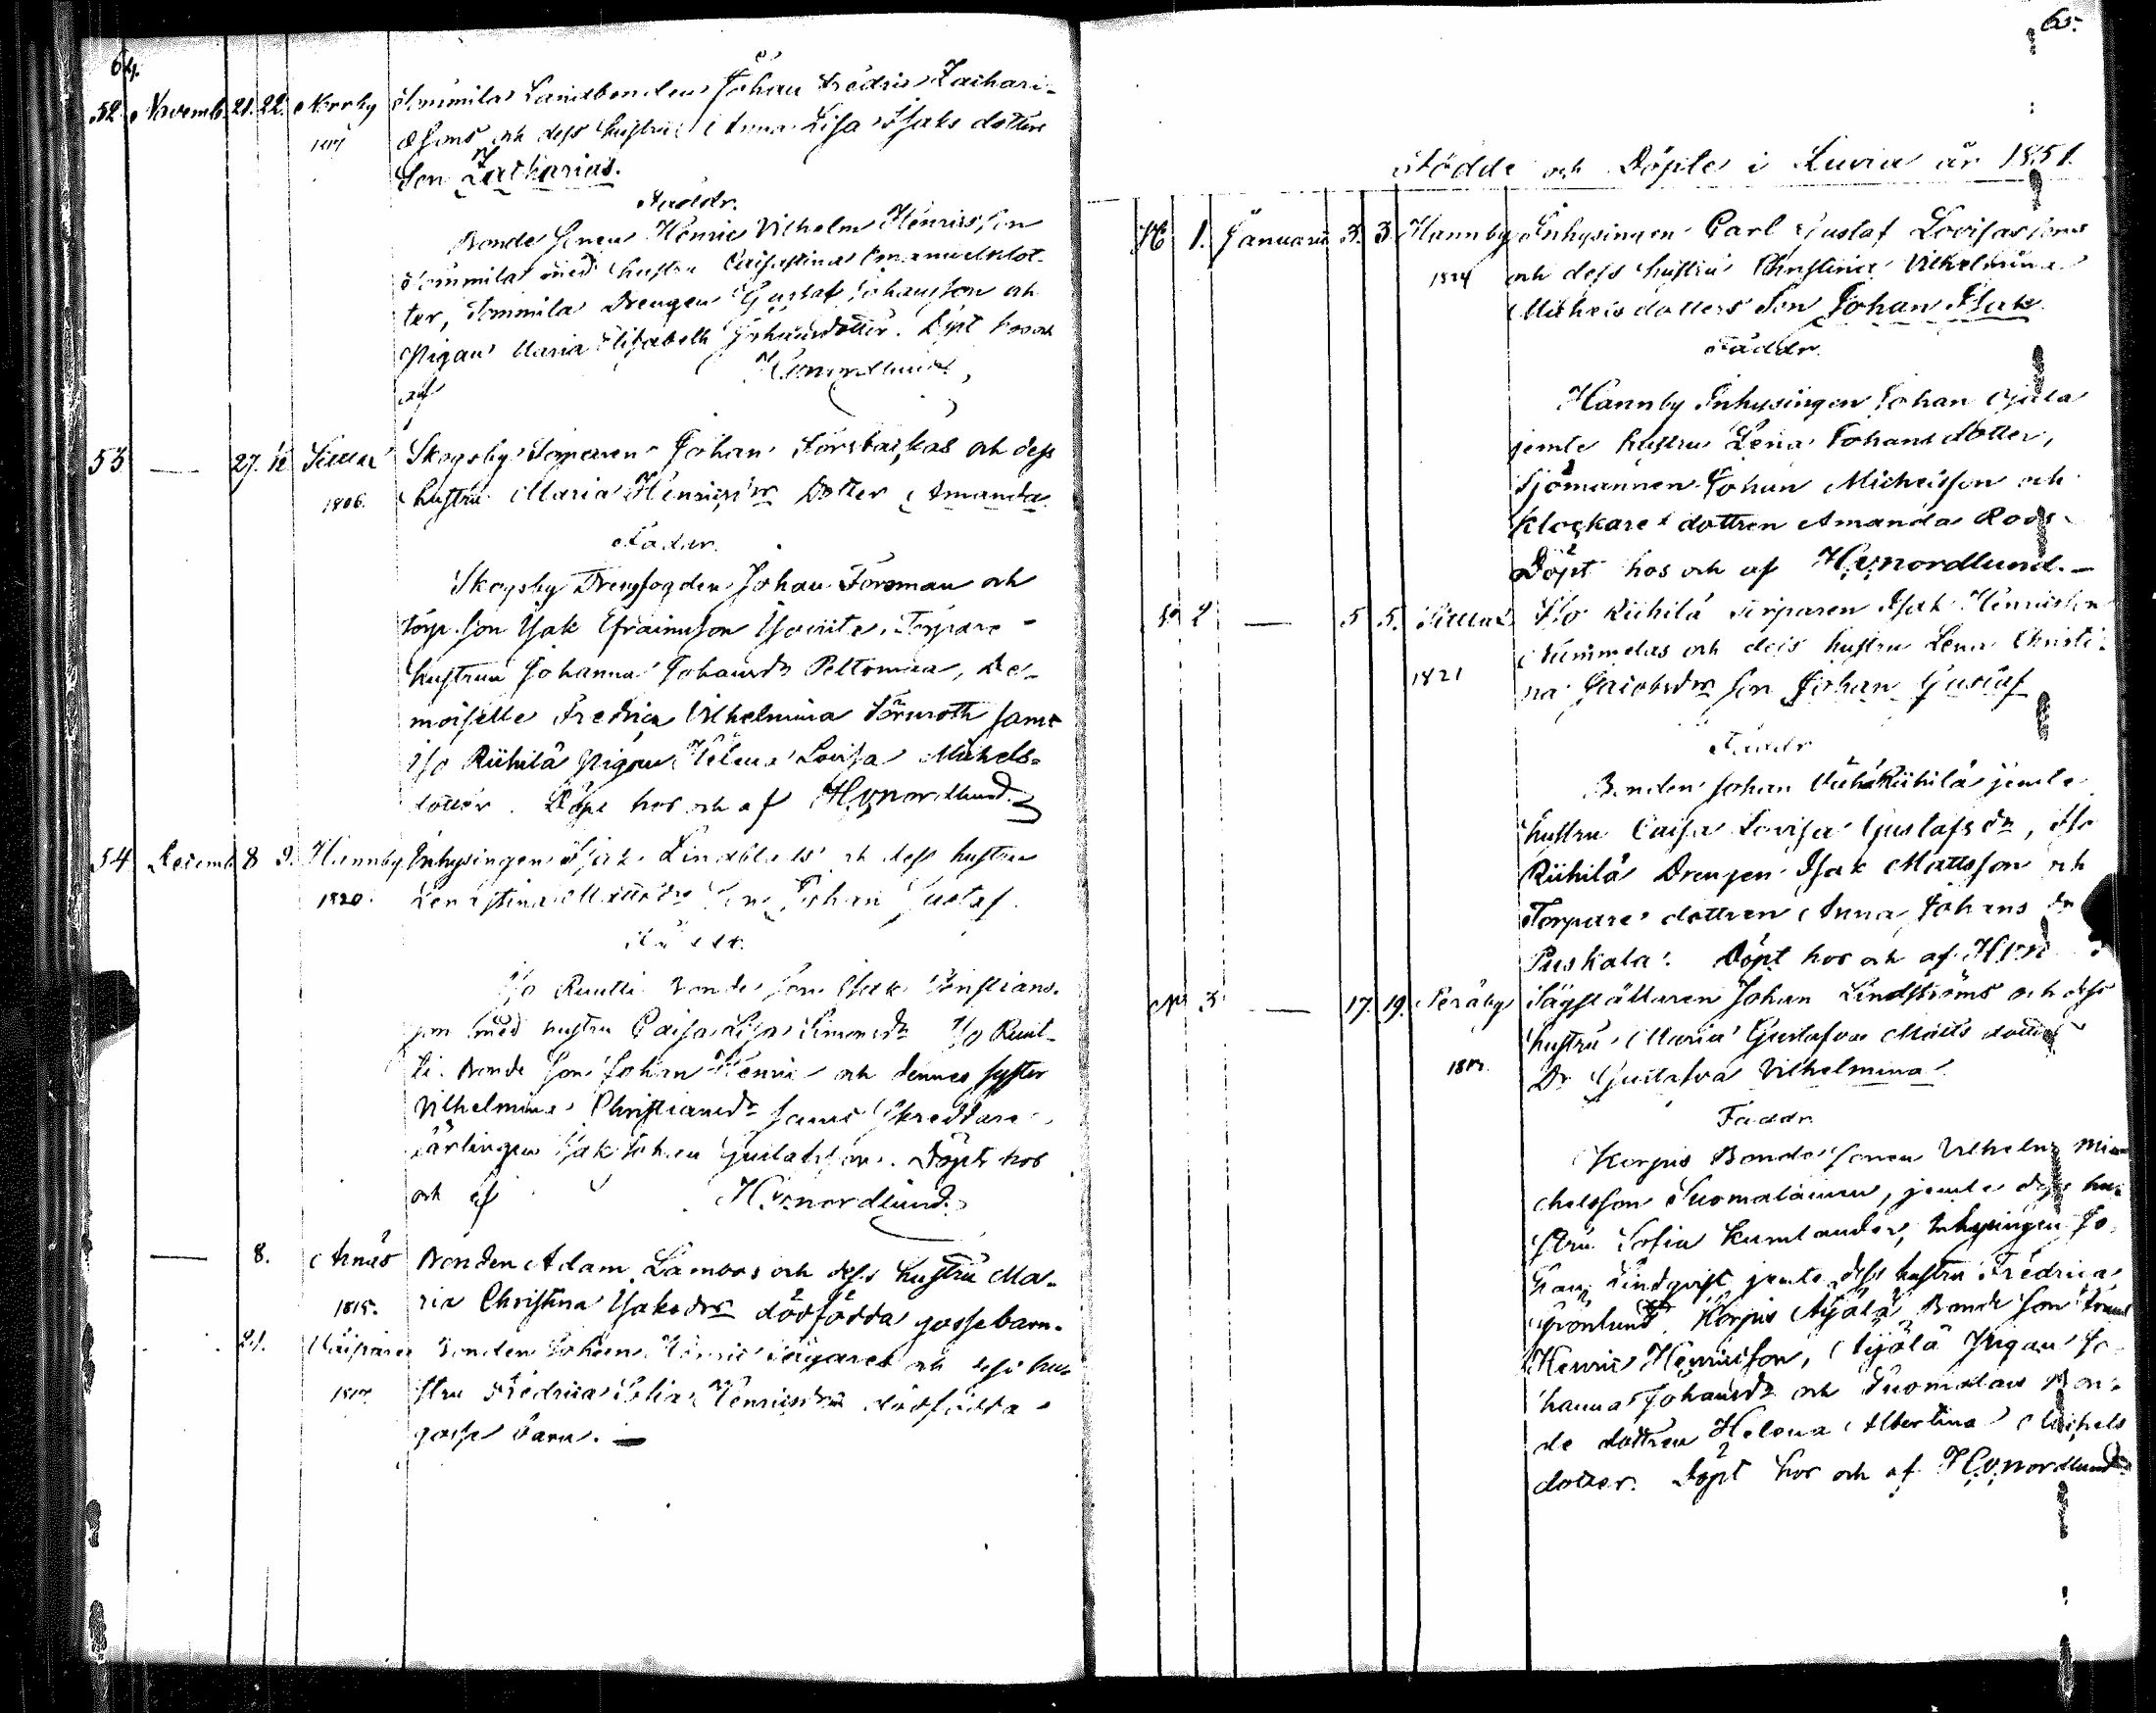 64.
52. Novemb. 21. 22. Norrby Sommila Landbonden Johan Fredric Zachari-
æsons och dess hustru Anna Lisa Isaks dotters
Son Zacharias.
Faddr.
Bonde Sonen Henric Vilhelm Henricsson
Sommila med hustru Caisastina Emanuelsdot-
ter, Sommila Drengen Gustaf Johansson och
Pigan Maria Elisabeth Johansdotter. Döpt hos och
af Hvnordlund
53 — 27. Skogsby Torparen Johan Forsbackas och dess
1806. hustru Maria Henricsdrs Dotter Amanda
Faddr.
Skogsby Drengfogden Johan Forsman och
Torp. Son Isak Efraimsson, Torpare
hustrun Johanna Johansdr Peltomaa, De-
moiselle Fredrica Vilhelmina Törnroth samt
Iso Riihilä Pigan Helena Lovisa Michels-
dotter. Döpt hos och af Hvnordlund
54 Decemb. 8 9. Hannby Inhysingen Isak Lindblads och dess hustru
1820. Lenastina Mattsdrs Son Johan Gustaf
Faddr.
Iso Ruutti Bonde Son Isak Christians-
son med hustru Caisa Lisa Simonsdr Iso Ruut-
ti Bonde Son Johan Henric och dennes syster
Vilhelmina Christiansdr samt Skreddare
lärlingen Isak Johan Gustafsson. Döpt hos
och af Hvnordlund
— 8. Anäs Bonden Adam Lambos och dess hustru Ma-
1815. ria Christina Isaksdrs dödfödda gossebarn.
21. Bonden Johan Henric och dess hu-
stru Fredrica Sofia Henricsdrs dödfödda
gosse barn. —
65.
Födde och Döpte i Luvia år 1851.
1. Januarii 3. 3. Hannby Inhysingen Carl Gustaf Lovisasons
1824 och dess hustru Christina Vilhelmina
Michelsdotters Son Johan Isak
Faddr.
Hannby Inhysingen Johan Ojala
jemte hustru Lena Johansdotter,
Sjömannen Johan Michelsson och
Klockare dottren Amanda Roos.
Döpt hos och af Hvnordlund. —
2 — 5 5. Iso Riihilä Torparen Isak Henricsson
1821 Nummelas och dess hustru Lena Christi-
na Jacobsdrs Son Johan Gustaf
Faddr
Bonden Johan Vähä Riihilä jemte
hustru Caisa Lovisa Gustafsdr, Iso
Riihilä Drengen Isak Mattsson och
Torpare dottren Anna Johans dr
Puskala. Döpt hos och af Hvn
3 — 17. 19. Peräby Sågställaren Johan Lindströms och dess
hustru Maria Gustafva Matts dotters
Dr Gustafva Vilhelmina
Faddr.
Korpis Bonde Sonen Vilhelm Mi-
chelsson Suomalainen, jemte dess hu-
stru Sofia Kumlander, Inhysingen Jo-
han Lindqvist jemte dess hustru Fredrica
Grönlund. Korpis Äijälä Bonde Son Frans
Henric Henricsson, Äijälä Pigan Jo-
hanna Johansdr och Suomalais Bon-
de dottren Helena Albertina Michels
dotter. Döpt hos och af Hvnordlund